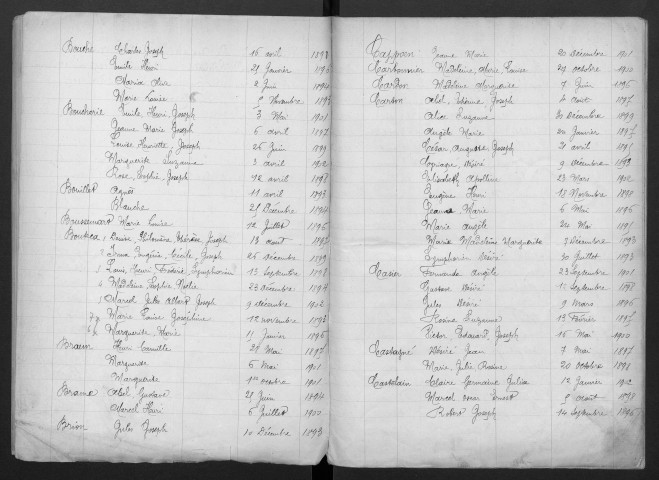 Bouche Charles Joseph 16 avril 1898
Emile Henri 21 Janvier 1890
Maria 2 Juin 1894
Marie Louise 5 Novembre 1895
Boucherie Emile, Henri, Joseph 3 Mai 1901
Jeanne Marie Joseph 6 avril 1897
Louise Henriette, Joseph 25 Juin 1899
Marguerite Suzanne 3 avril 1902
Rose, Sophie, Joseph 12 avril
Bouillet Agnès 11 avril 1893
Blanche 21 Décembre 1894
Marie Louise 12 Juillet 1896
Joseph 13 août 1897
Irma, Eugénie, Cécile, Joseph 25 Décembre 1899
Louis, Henri Symphorien 13 Septembre 1891
Madeleine Sophie 23 Décembre 1894
Marcel Jules Albert Joseph 9 décembre 1902
Marie Louise Joséphine 12 novembre 1893
Marguerite, Marie 11 Janvier 1895
Braem Henri Camille 31 Mai 1897
Marguerite 5 Mai 1901
Marguerite 1er octobre 1901
Brame Abel Gustave 21 Juin 1894
Marcel Henri 6 Juillet 1900
Brion Jules Joseph 10 Décembre 1893
Cappoen Jeanne Marie 20 Décembre 1901
Carbonnier Madeleine, Marie, Louise 29 octobre 1900
Cardon Madeleine Marguerite 7 Juin 1895
Carton Abel, Etienne, Joseph 4 août 1897
Alice Suzanne 30 Décembre 1899
Angèle Marie 20 Janvier 1897
César Auguste Joseph 21 avril 1891
Désiré 9 décembre
Elisabeth Apolline 23 Mars 1902
Eugène Henri 12 Novembre 1890
Jeanne Marie 6 Mai 1895
Marie Angèle 20 Mai 1891
Marie Madeleine Marguerite 7 Décembre 1893
Symphorien Désiré 30 Juillet 1893
Fernande Angèle 23 Septembre 1901
Gustave Désiré 11 Septembre 1898
Jules Désiré 9 Mars 1895
Rosine Suzanne 13 Février 1897
Victor, Edouard, Joseph 15 Mai 1900
Castagné Désiré Jean 7 Mai 1897
Marie, Julie Rosine 20 octobre 1898
Castelain Claire Germaine Julia 12 Janvier 1902
Marcel Oscar Ernest 9 août 1898
Robert Joseph 14 Septembre 1895